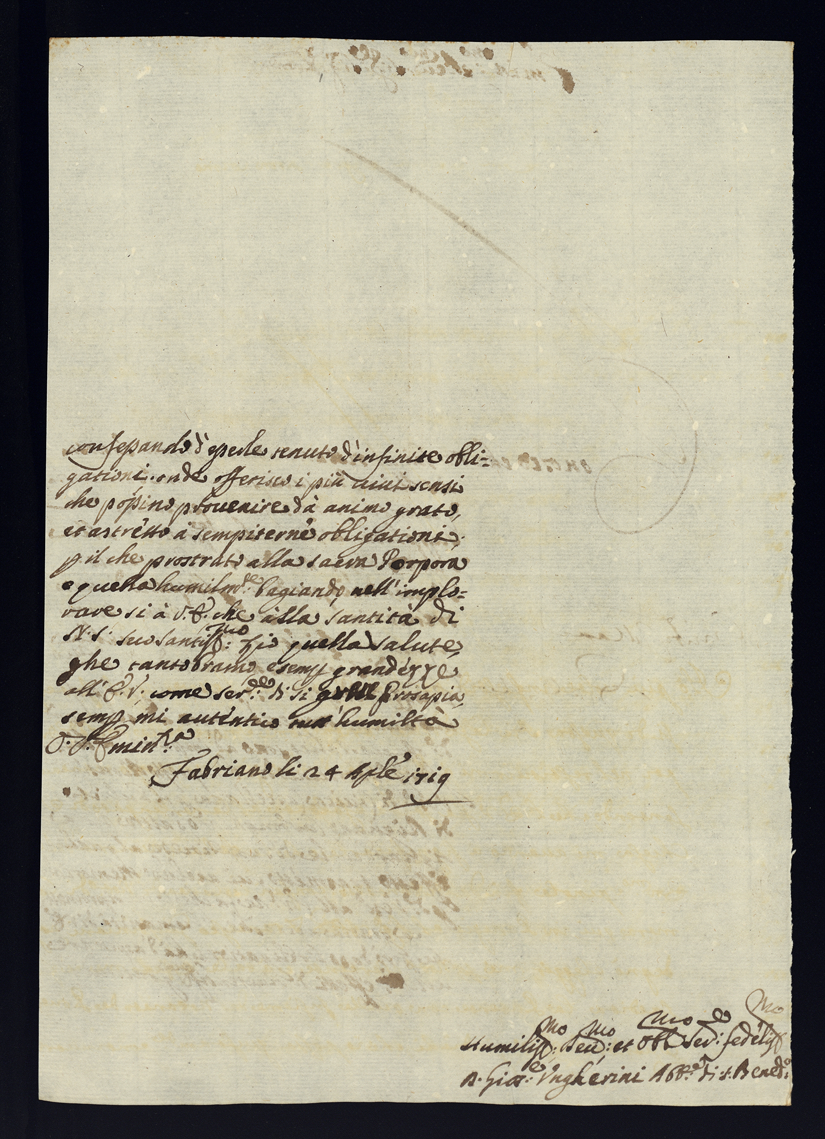 confessando d'essere tenuto d'infinite obli=
gationi: onde offerisco i più vivi sensi
che possino provenire dà animo grato,
et astretto à sempiterne obligationi;
p il che prostrato alla sacra Porpora
e quella humilm.te bagiando, nell'implo=
rare si à V.E. che alla Santità di
N.S. suo Santiss.mo Zio quella salute,
che tanto bramo, e semp grandezze
all'E.V., come ser.de di si Prosapia,
semp mi autentico con humiltà
D. V. Emin.za
Fabriano li 24 Aple 1719
Humiliss.mo Dev.mo et Obl.mo Ser.e fedeliss.mo
D. Gio: Ungherini Abb.e di S. Bened.o